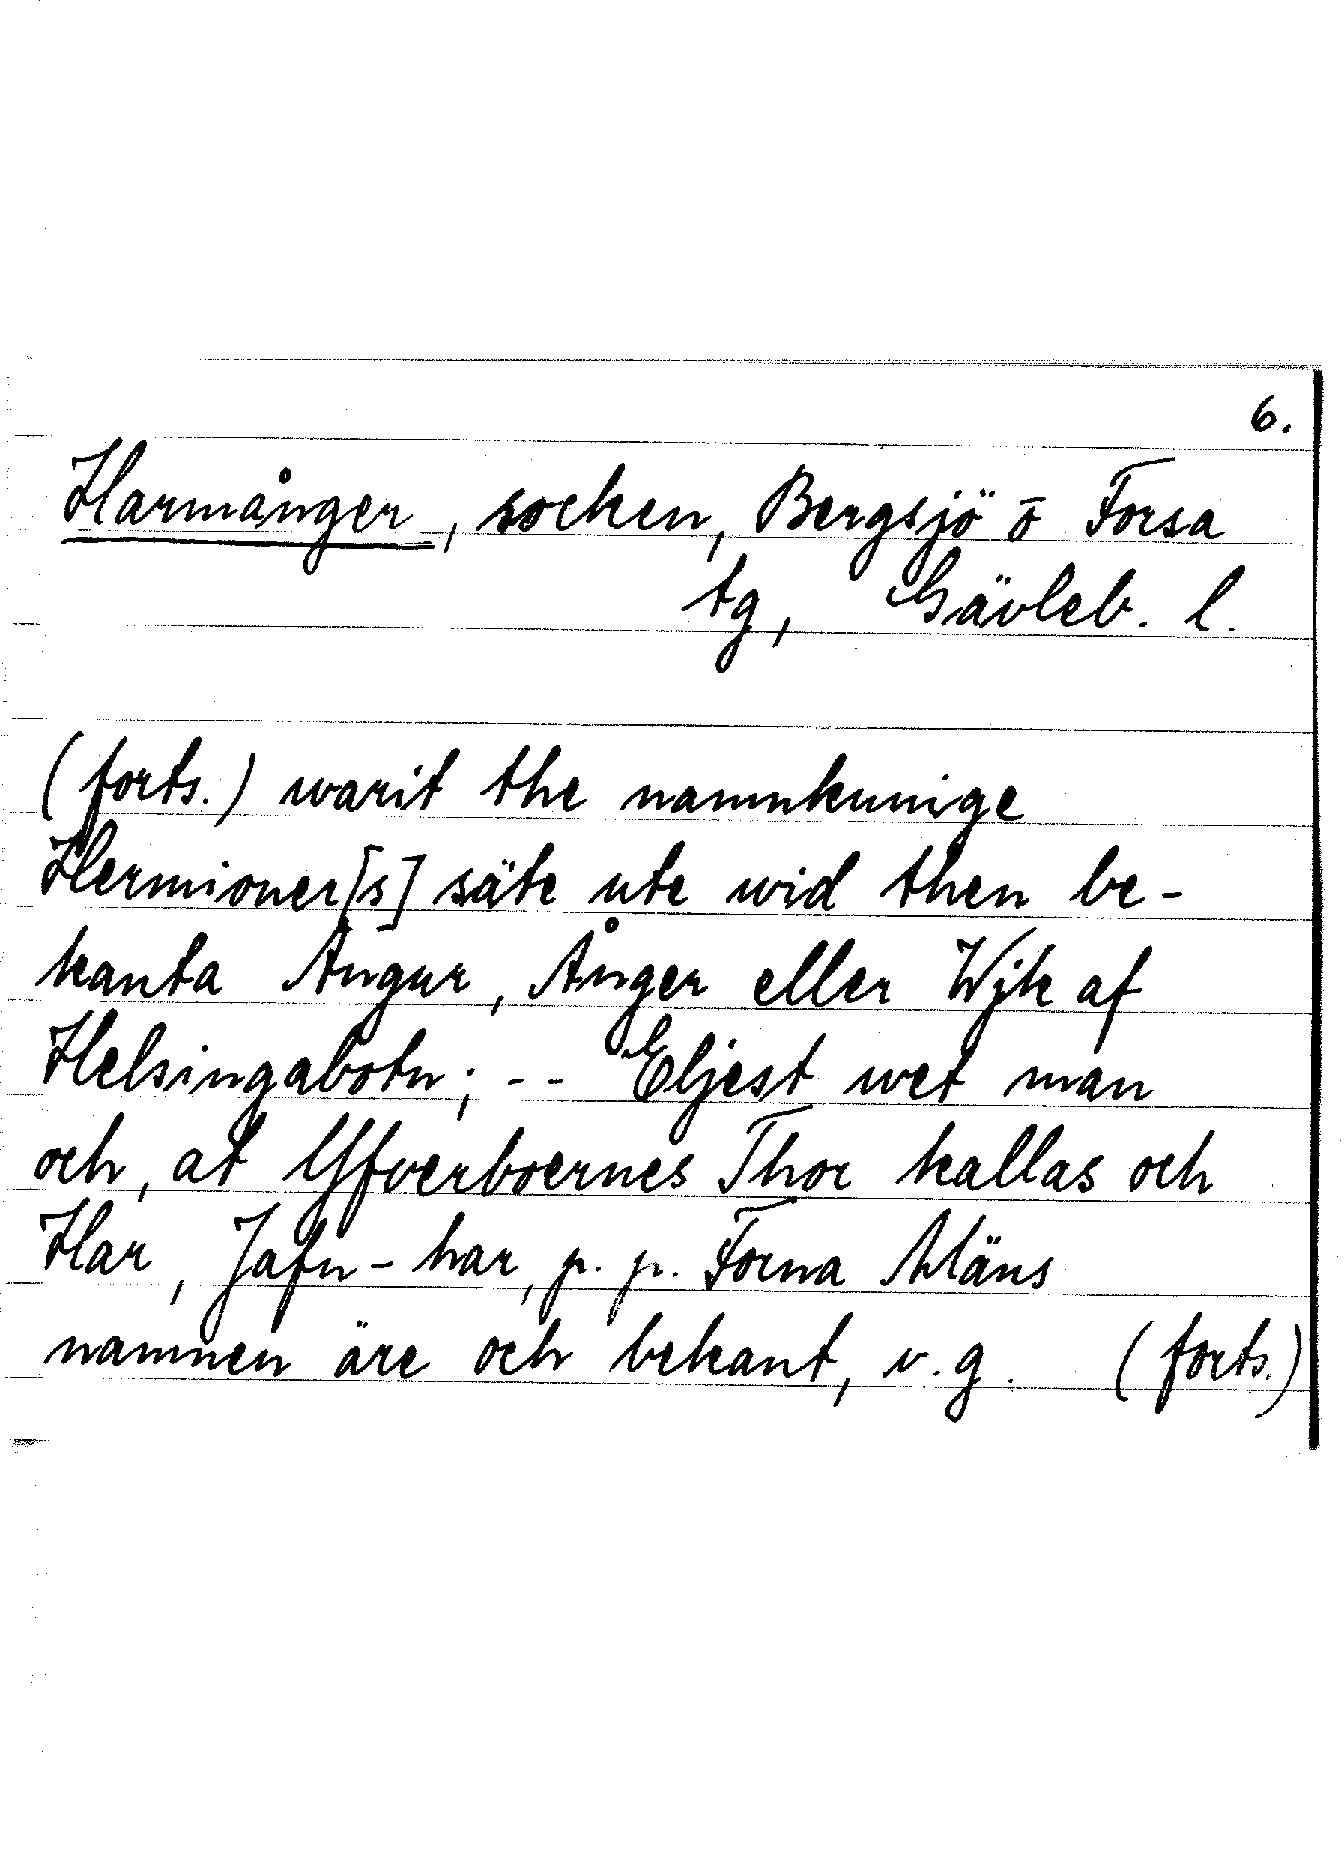 6.
Harmånger, socken, Bergsjö o Forsa
tg, Gävleb. l.
(forts.) warit the namnkunige
Hermioner[s] säte ute wid then be-
kanta Angur, Ånger eller Wjk af
Helsingabotn; -- Eljest wet man
och, at Yfverboernes Thor kallas och
Har, Jafn-har, p. p. Forna Mäns
namnen äre och bekant, v.g. (forts.)